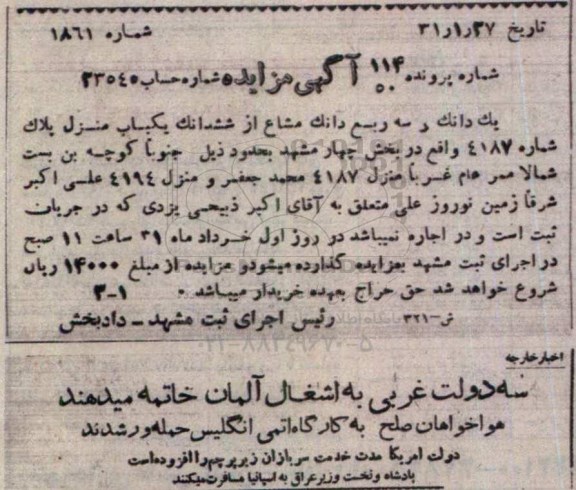 تاریخ ۳۱٫۱٫۲۷ شماره ۱۸۶۱
شماره پرونده ۱۱۴ آگهی مزایده شماره حساب ۲۳۵۴۵
۵۰
یك دانك و سه ربع دانك مشاع از ششدانك یکباب منزل پلاك
شماره ۴۱۸۷ واقع در بخش چهار مشهد بحدود ذیل جنوباً کوچه بن بست
شمالا ممر عام غرباً منزل ۴۱۸۷ محمد جعفر و منزل ۴۱۹۴ علی اکبر
شرقاً زمین نوروز علی متعلق به آقای اکبر ذبیحی یزدی که در جریان
ثبت است و در اجاره نمیباشد در روز اول خرداد ماه ۳۱ ساعت ۱۱ صبح
در اجرای ثبت مشهد بمزایده گذارده میشود و مزایده از مبلغ ۱۴۰۰۰ ریال
شروع خواهد شد حق حراج بعهده خریدار میباشد ۰ ۱–۳
ش–۳۲۱ رئیس اجرای ثبت مشهد – دادبخش
اخبار خارجه
سه دولت غربی به اشغال آلمان خاتمه میدهند
هواخواهان صلح به کارگاه اتمی انگلیس حمله ور شدند
دولت امریکا مدت خدمت سربازان زیر پرچم را افزوده است
پادشاه و نخست وزیر عراق به اسپانیا مسافرت میکنند